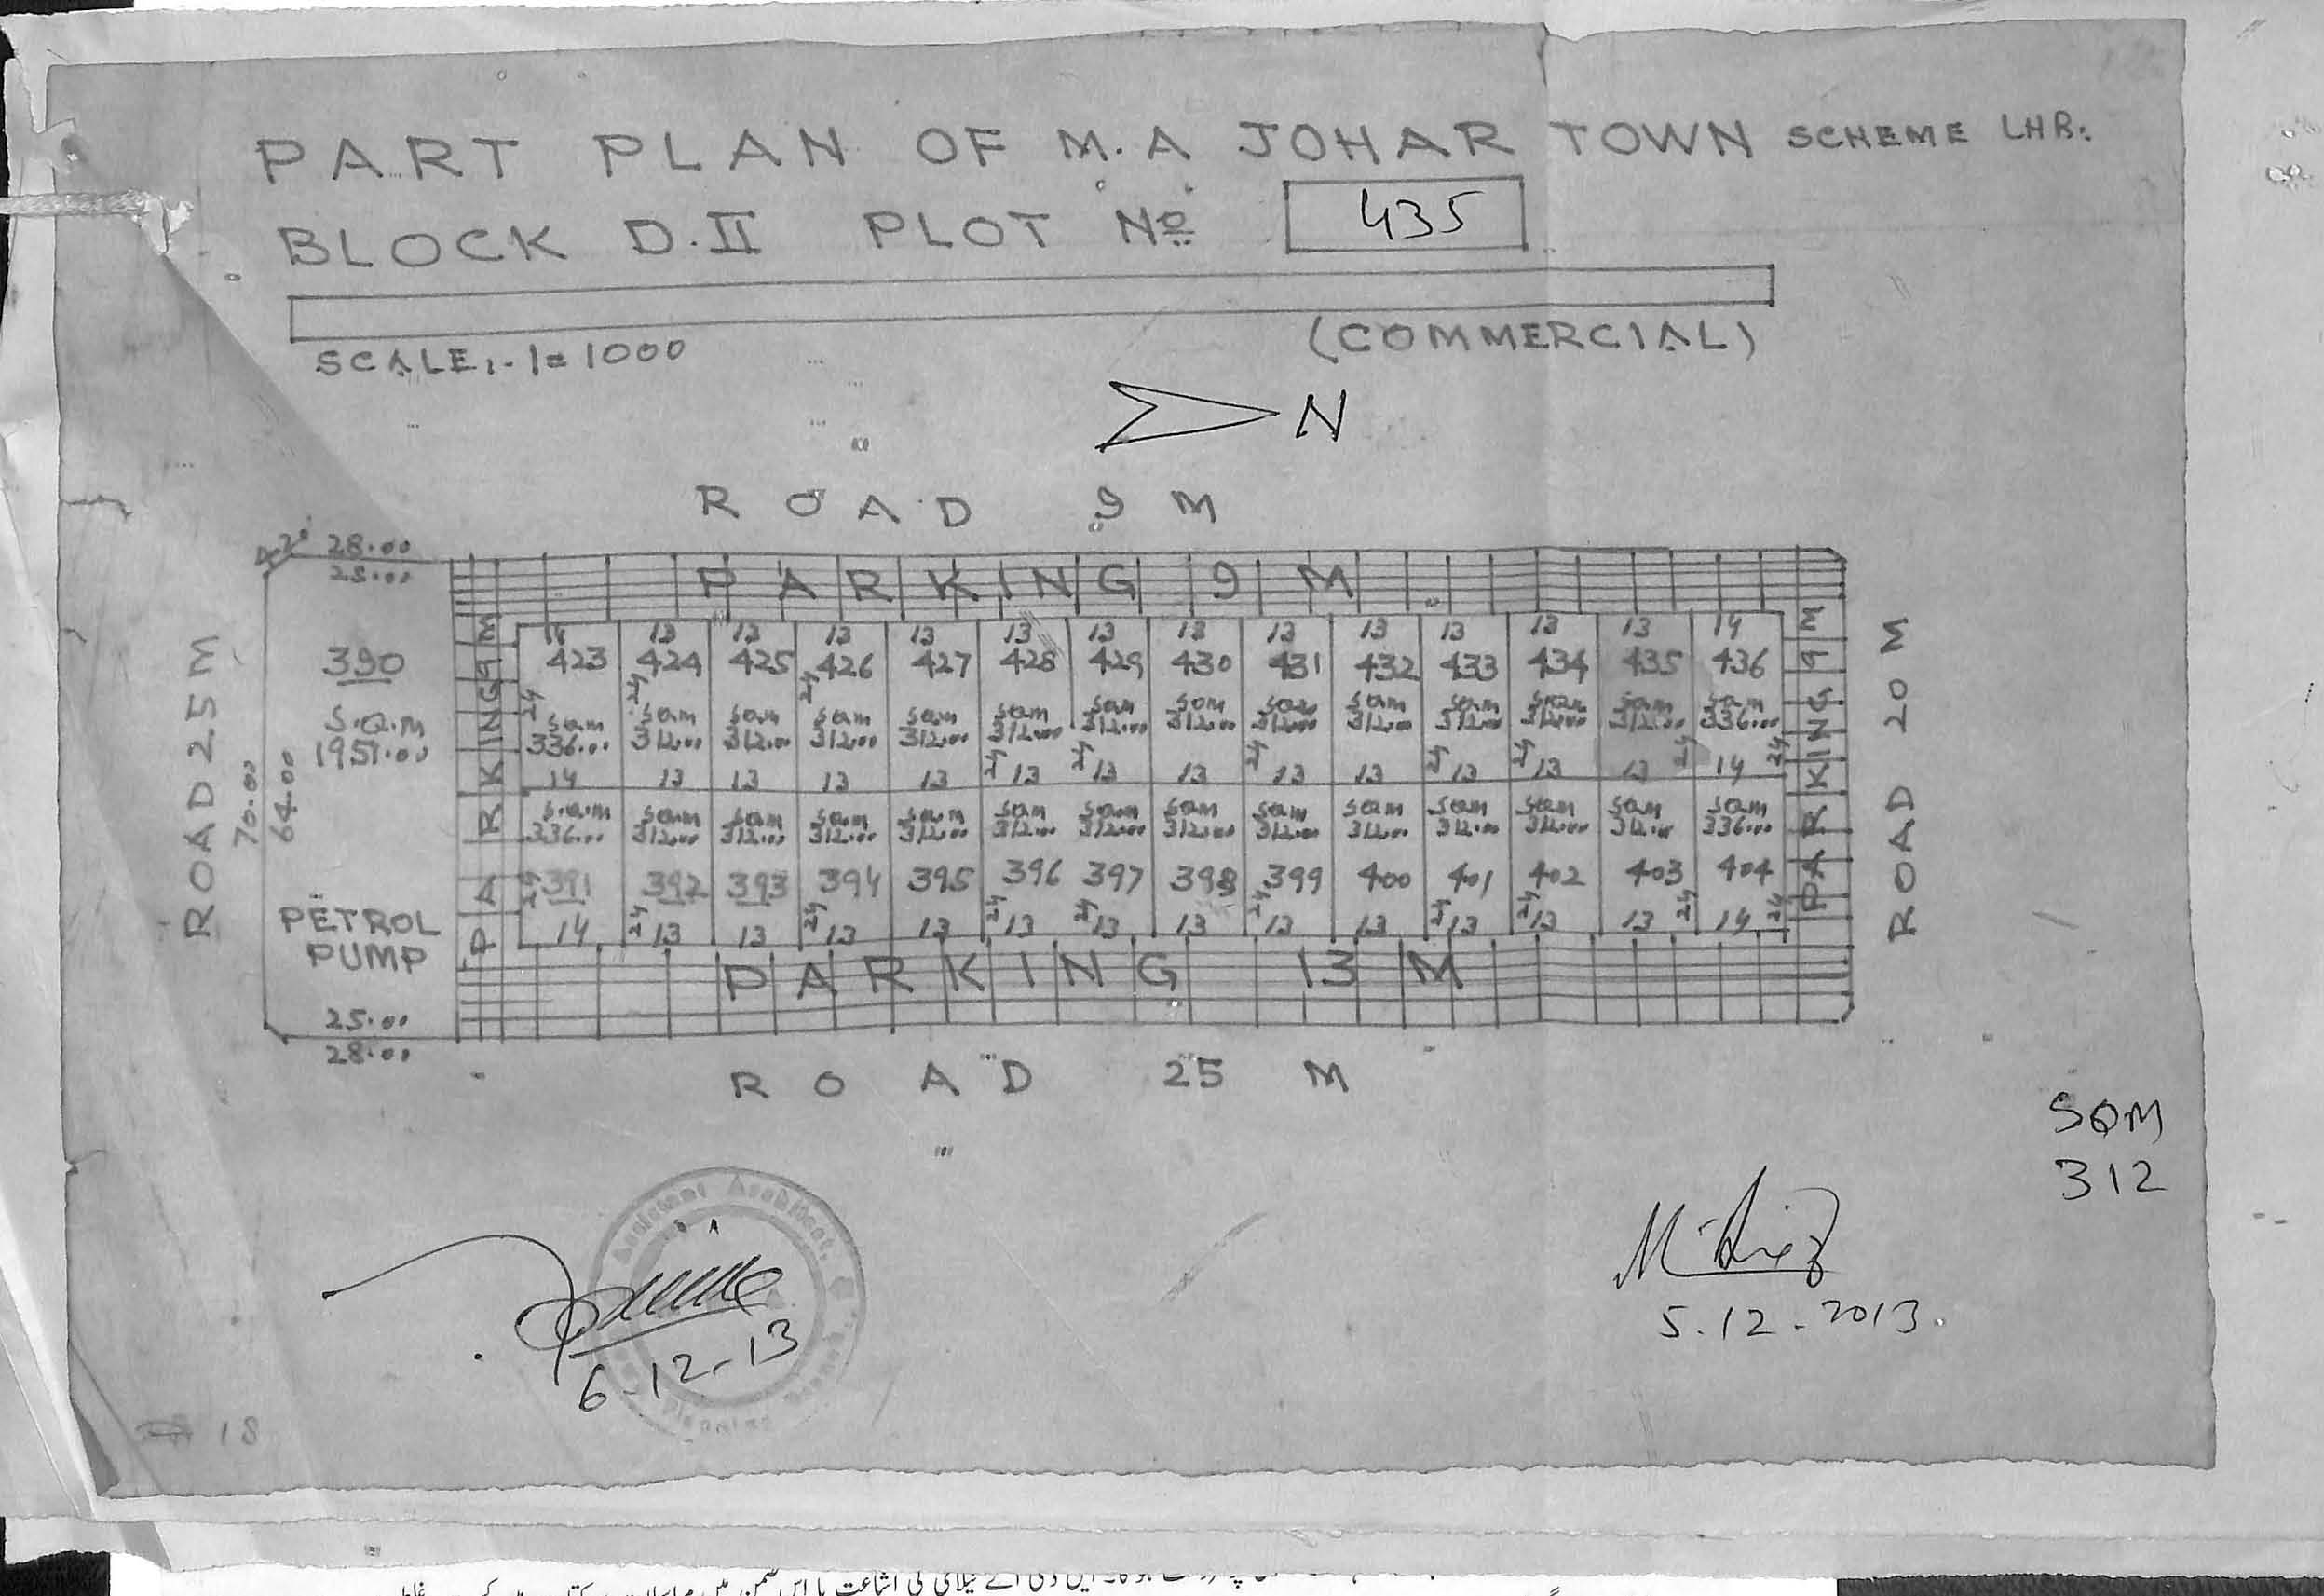 PART PLAN OF M.A JOHAR TOWN SCHEME LHR:
BLOCK D.II PLOT No 435
(COMMERCIAL)
SCALE:-1=1000
N
ROAD 9 M
28.00
25.00
PARKING 9 M.
ROAD 25 M
70.00
64.00
390
S.Q.M
1951.00
PETROL
PUMP
25.00
28.00
PARKING 9 M
14 13 13 13 13 13 13 13 13 13 13 13 13 14
423 424 425 426 427 428 429 430 431 432 433 434 435 436
24 24 24
SQM SQM SQM SQM SQM SQM SQM SQM SQM SQM SQM SQM SQM SQM
336.00 312.00 312.00 312.00 312.00 312.00 312.00 312.00 312.00 312.00 312.00 312.00 312.00 336.00
24 24 24 24 24 24 24
14 13 13 13 13 13 13 13 13 13 13 13 13 14
S.Q.M SQM SQM SQM SQM SQM SQM SQM SQM SQM SQM SQM SQM SQM
336.00 312.00 312.00 312.00 312.00 312.00 312.00 312.00 312.00 312.00 312.00 312.00 312.00 336.00
391 392 393 394 395 396 397 398 399 400 401 402 403 404
24 24 24 24 24 24 24 24 24 24
14 13 13 13 13 13 13 13 13 13 13 13 13 14
PARKING 9 M
ROAD 20 M
PARKING 13 M
ROAD 25 M
SQM
312
Assistant Architect
Planning
6-12-13
M. Riaz
5.12.2013.
18